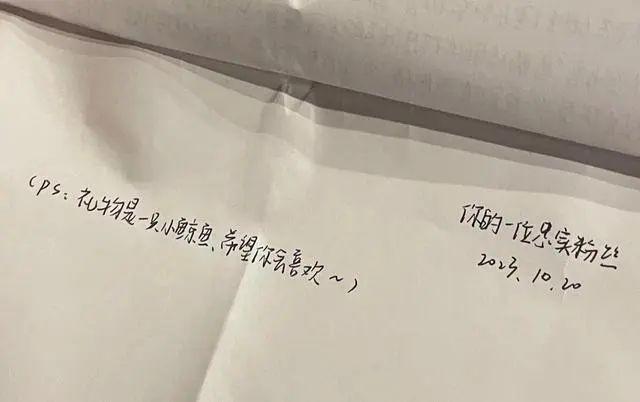 你的一位忠实粉丝
2023.10.20
(ps:礼物是一只小鲸鱼、希望你会喜欢~)